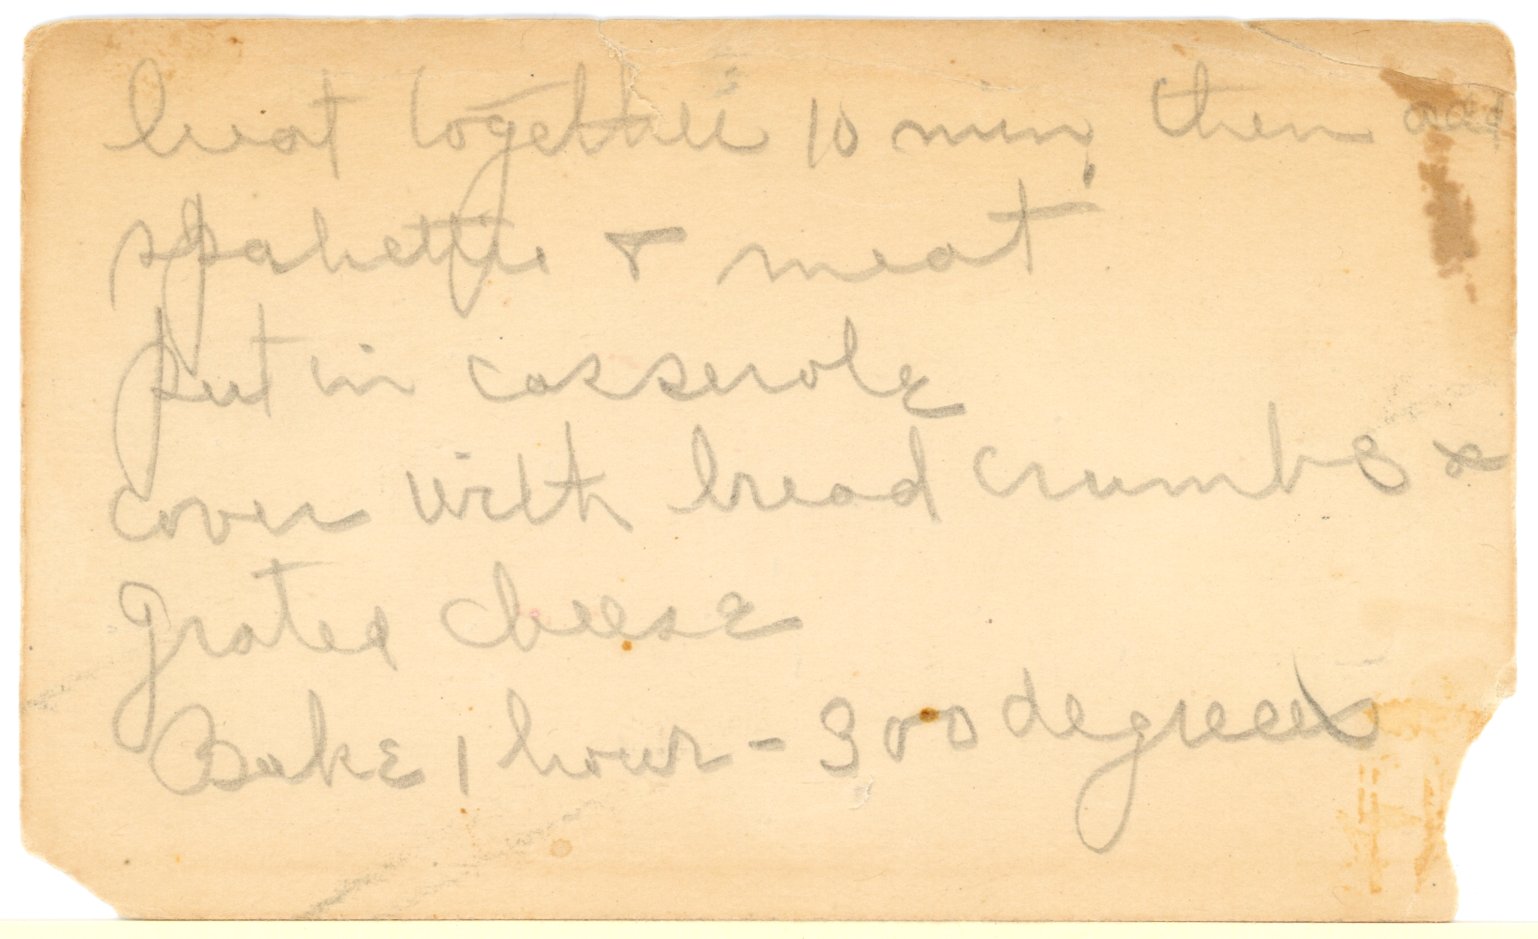 heat together 10 min, then
spahettie & meat
put in casserole
cover with bread crumbs &
grated cheese
Bake 1 hour - 300 degrees